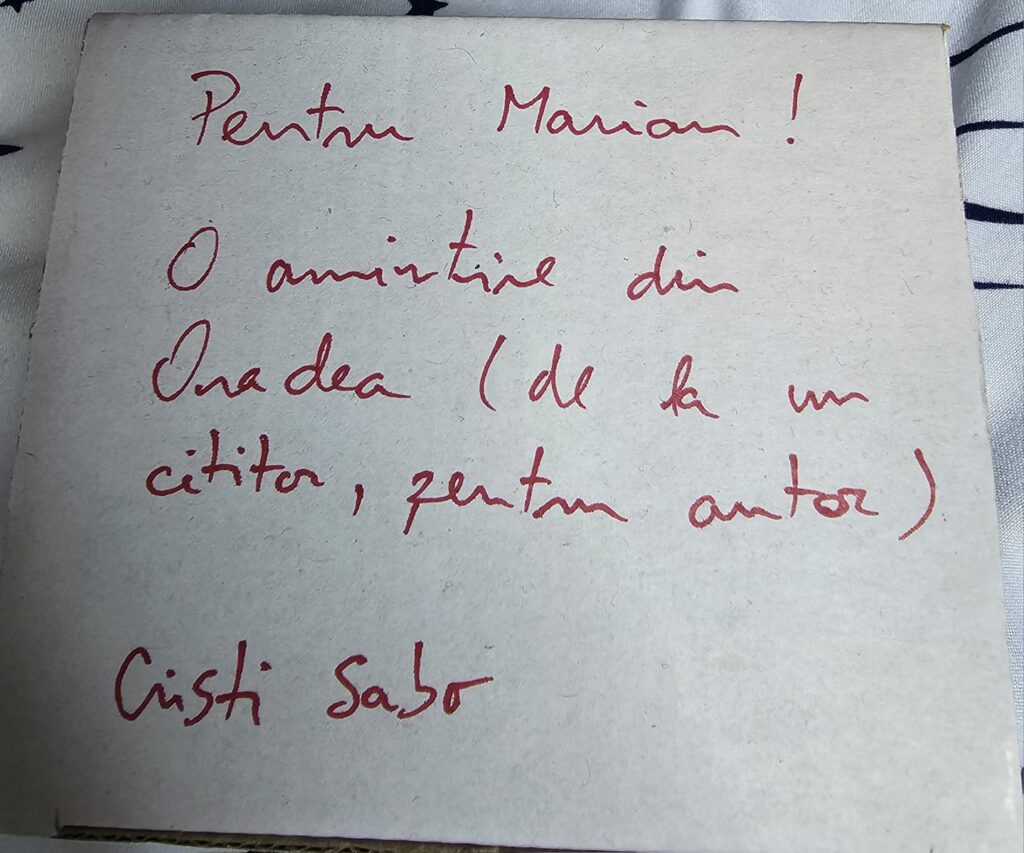 Pentru Marian!
O amintire din
Oradea (de la un
cititor, pentru autor)
Cristi Sabo